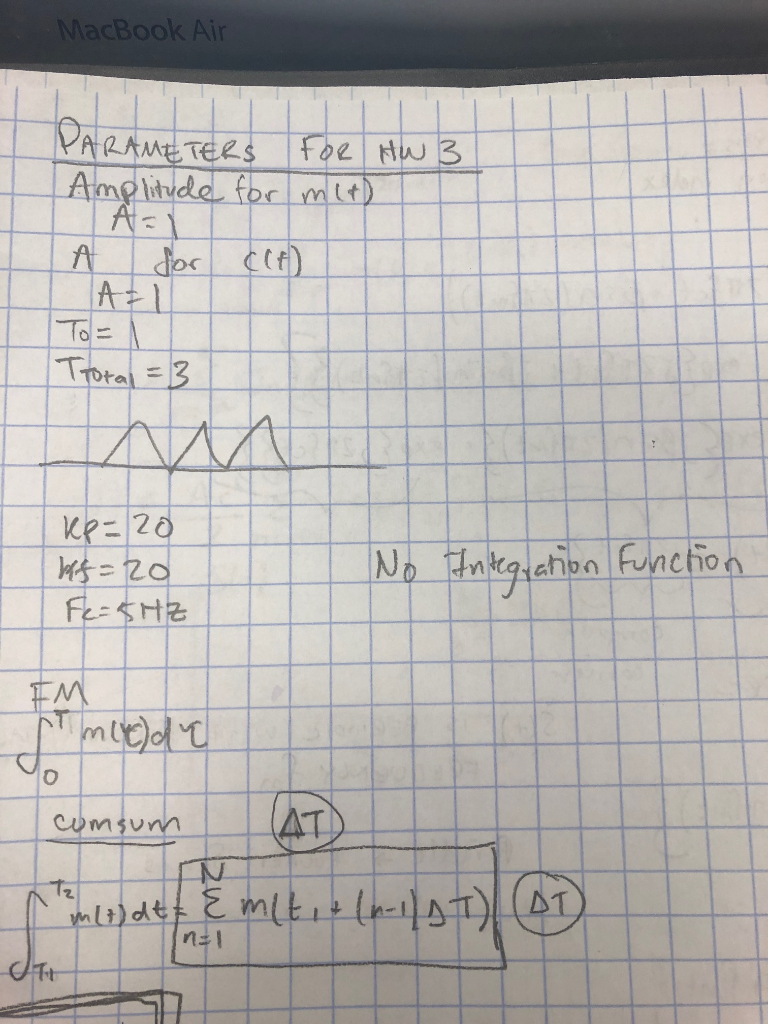 MacBook Air
PARAMETERS FOR HW 3
Amplitude for m(t)
A = 1
A for c(t)
A = 1
To = 1
TTotal = 3
kp = 20
kf = 20
No Integration Function
Fc = 5HZ
FM
∫₀ᵀ m(τ)dτ
cumsum ΔT
∫_{T1}^{T2} m(t)dt = Σ_{n=1}^{N} m(t₁ + (n-1)ΔT) ΔT